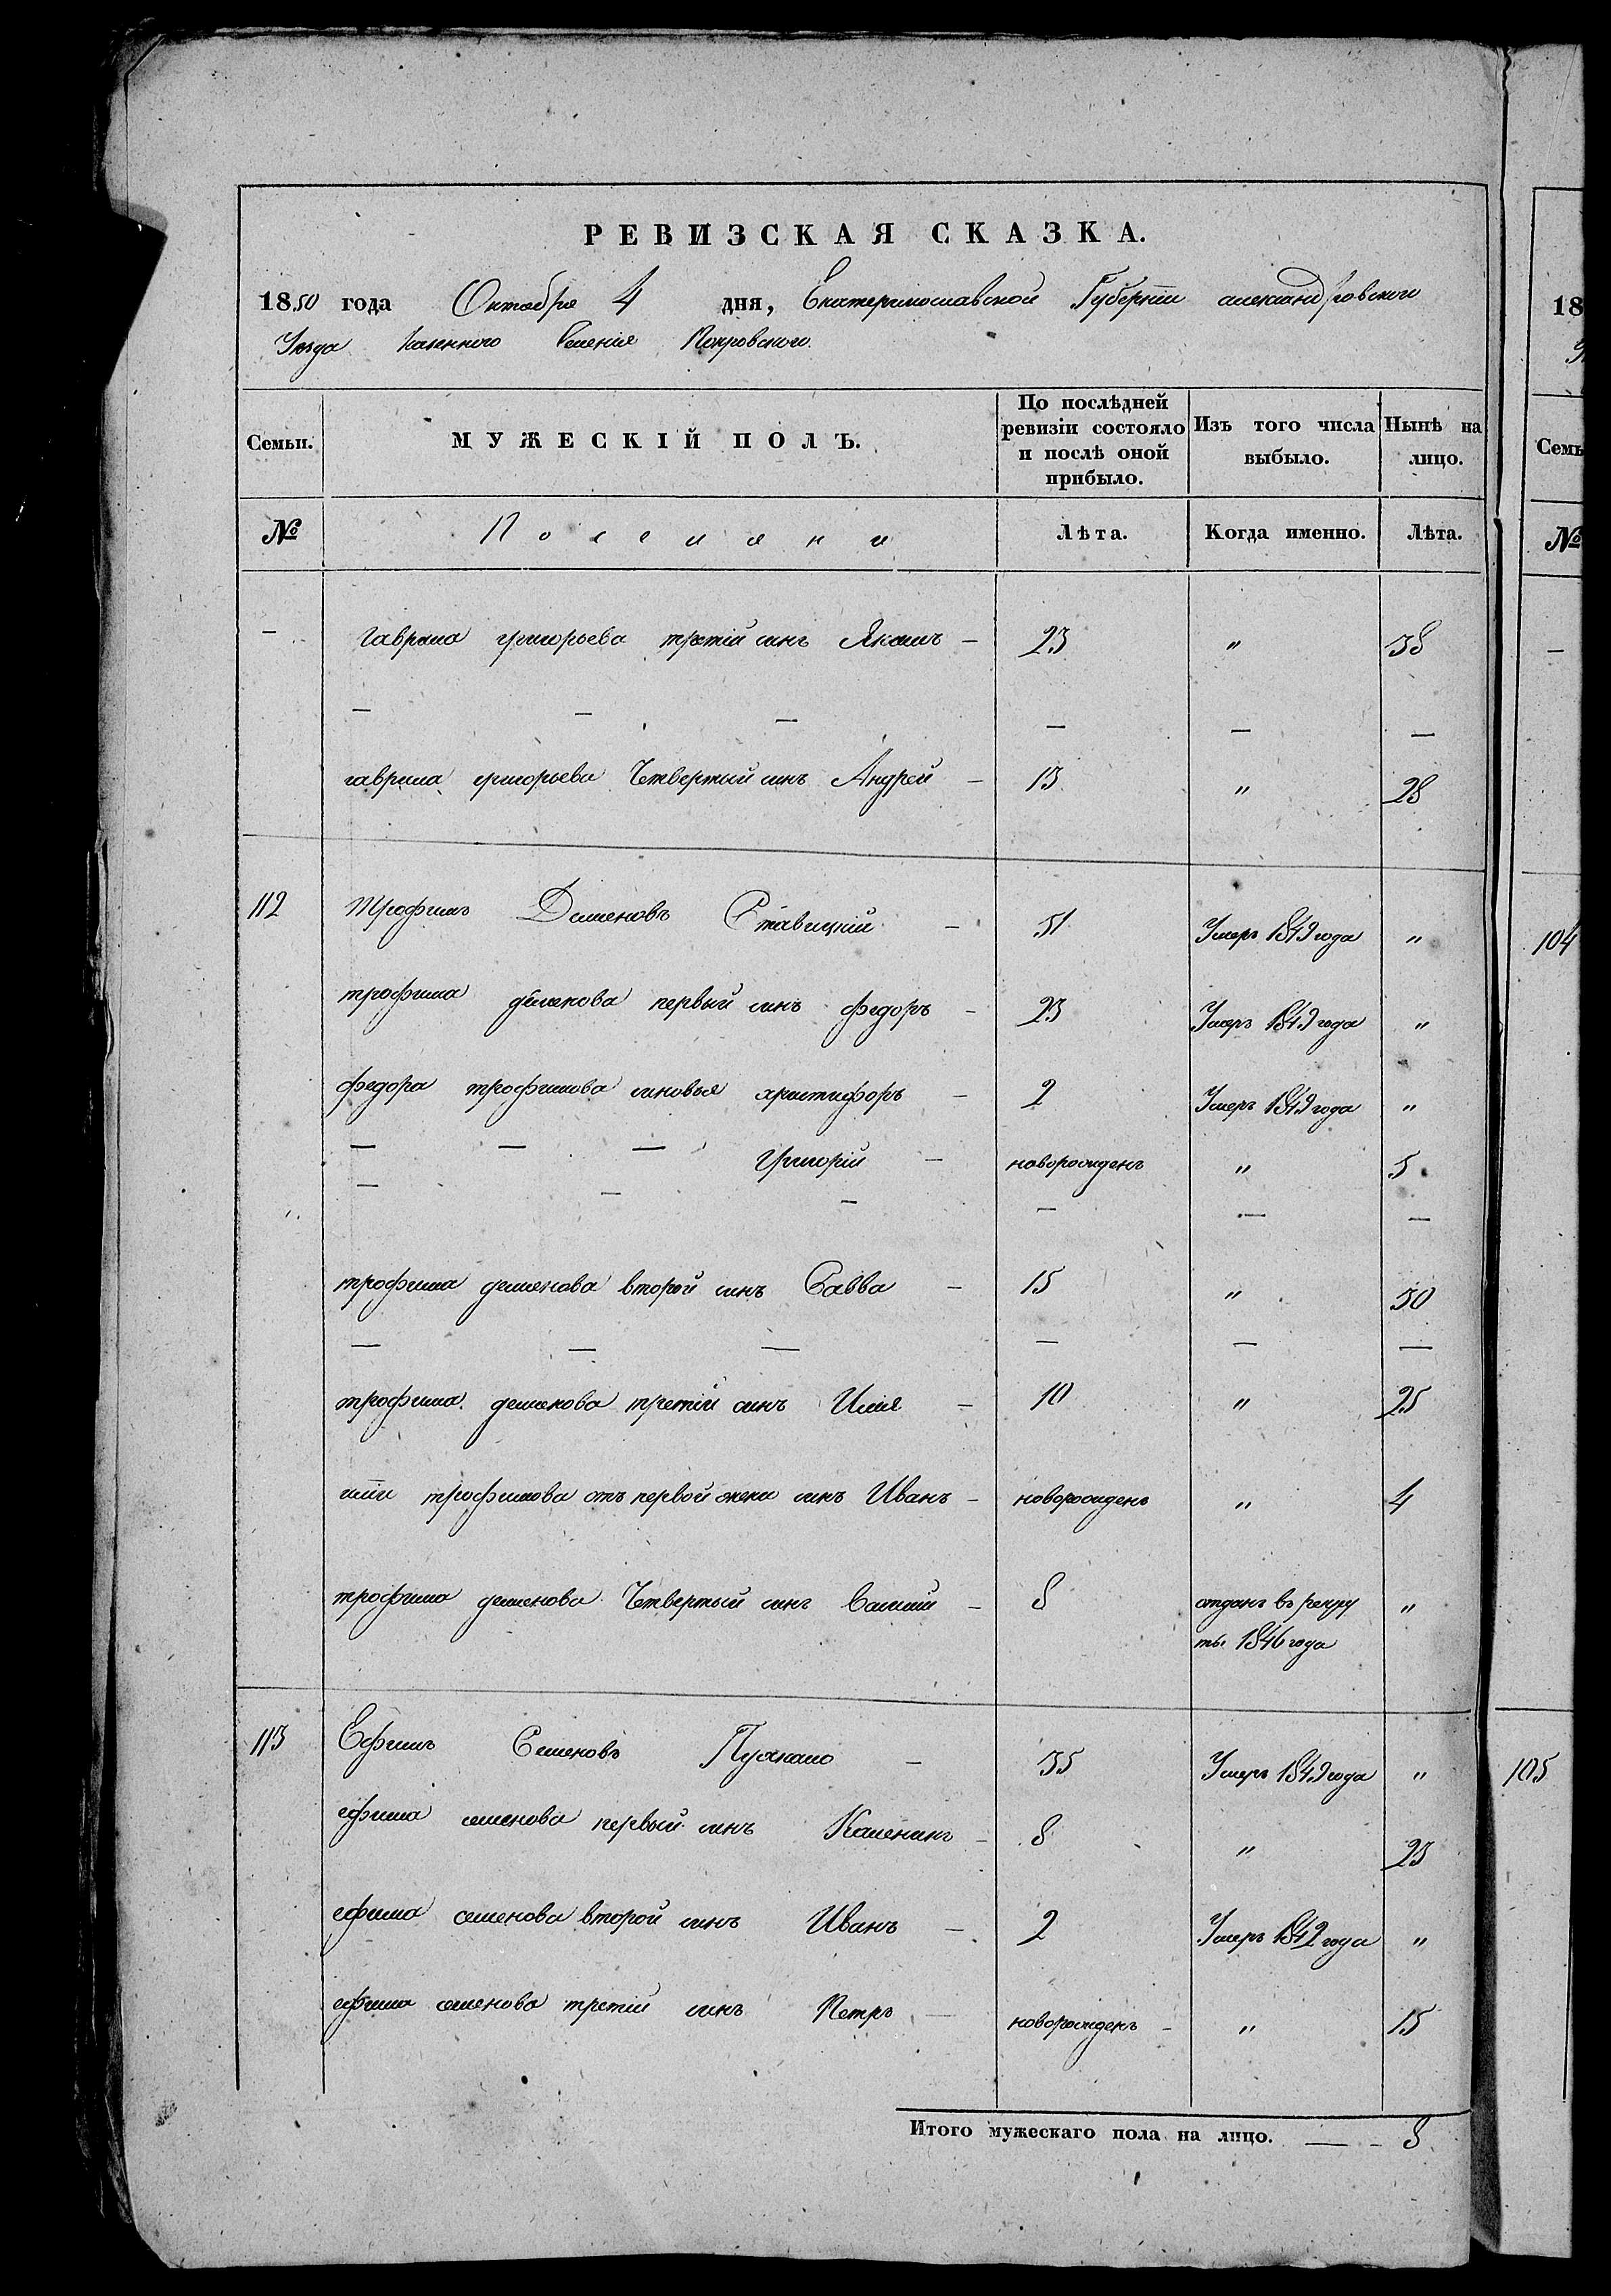 РЕВИЗСКАЯ СКАЗКА.
1850 года Октября 4 дня, Екатеринославской Губерніи александровского
Уезда Казенного Селенія Покровского.
Семьи. МУЖЕСКІЙ ПОЛЪ. По послѣдней ревизіи состояло и послѣ оной прибыло. Изъ того числа выбыло. Нынѣ на лицо.
№ Поселяни Лѣта. Когда именно. Лѣта.
- гаврила григорьева третій синъ Якимъ - 23 " 38
— — — — — —
гаврила григорьева Четвертый синъ Андрей - 13 " 28
112 Трофимъ Деменовъ Ставицкій - 51 Умеръ 1849 года "
трофима деменова первый синъ федоръ - 23 Умеръ 1849 года "
федора трофимова синовья христифоръ - 2 Умеръ 1849 года "
— — — Григорій - новорожденъ " 5
— — — — — —
трофима деменова второй синъ Савва - 15 " 30
— — — — — —
трофима деменова третій синъ Илия - 10 " 25
илии трофимова отъ первой жени синъ Иванъ - новорожденъ " 4
трофима деменова Четвертый синъ Василий - 8 отданъ въ рекру "
ты 1846 года
113 Ефимъ Семеновъ - 35 Умеръ 1849 года "
ефима семенова первый синъ Каленикъ - 8 " 23
ефима семенова второй синъ Иванъ - 2 Умеръ 1842 года "
ефима семенова третій синъ Петръ - новорожденъ - " 15
Итого мужескаго пола на лицо. — - 8
18
Семь
№
-
104
105